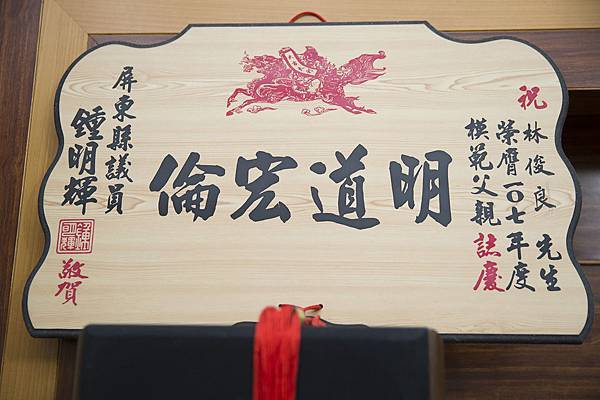 祝
林俊良 先生
榮膺一〇七年度
模範父親誌慶
明道宏倫
屏東縣議員
鍾明輝
敬賀